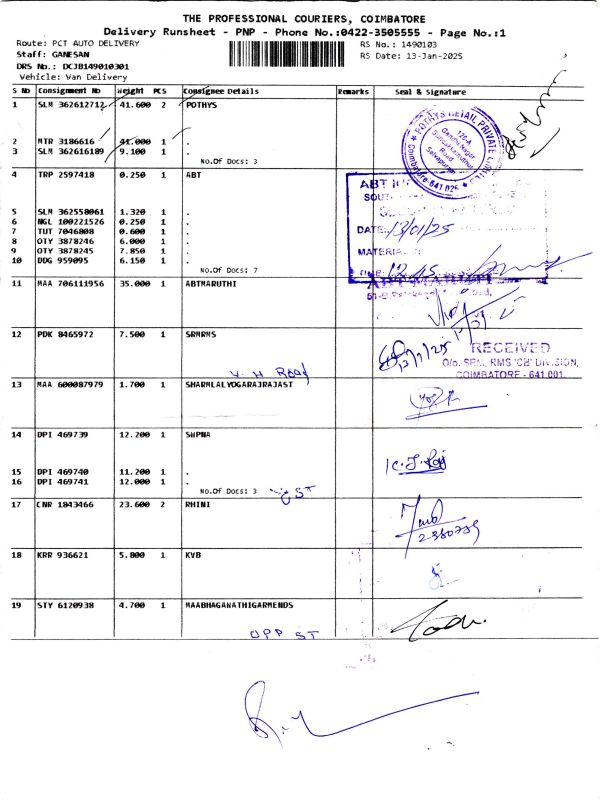 THE PROFESSIONAL COURIERS, COIMBATORE
Delivery Runsheet - PNP - Phone No.:0422-3505555 - Page No.:1
Route: PCT AUTO DELIVERY
Staff: GANESAN
DRS No.: DCJB149010301
Vehicle: Van Delivery
RS No.: 1490103
RS Date: 13-Jan-2025
S No Consignment No Weight PCS Consignee Details Remarks Seal & Signature
1 SLM 362612712 41.600 2 POTHYS
2 MTR 3186616 41.000 1 .
3 SLM 362616189 9.100 1 .
No.Of Docs: 3
POTHYS RETAIL PRIVATE LIMITED
Coimbatore-641 026
4 TRP 2597418 0.250 1 ABT
5 SLM 362558061 1.320 1 .
6 NGL 100221526 0.250 1 .
7 TUT 7046808 0.600 1 .
8 OTY 3878246 6.000 1 .
9 OTY 3878245 7.850 1 .
10 DDG 959095 6.150 1 .
No.Of Docs: 7
DATE: 13/01/25
11 MAA 706111956 35.000 1 ABTMARUTHI
12 PDK 8465972 7.500 1 SRMRMS
RECEIVED
O/o. SRM, RMS 'CB' DIVISION,
COIMBATORE - 641 001.
13 MAA 600087979 1.700 1 SHARMLALYOGARAJRAJAST
14 DPI 469739 12.200 1 SWPNA
15 DPI 469740 11.200 1 .
16 DPI 469741 12.000 1 .
No.Of Docs: 3
17 CNR 1843466 23.600 2 RHINI
18 KRR 936621 5.800 1 KVB
19 STY 6120938 4.700 1 MAABHAGANATHIGARMENDS
OPP ST